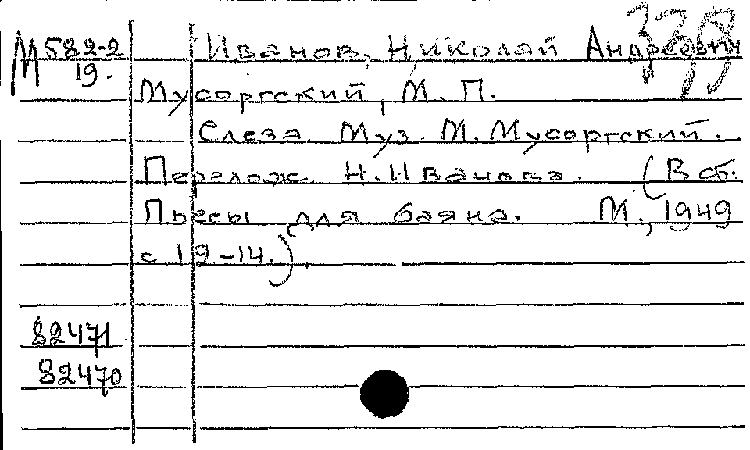 М 582-2 Иванов, Николай Андреевич
19.
Мусоргский, М. П.
Слеза. Муз. М. Мусоргский.
Перелож. Н. Иванова. (В сб.
Пьесы для баяна. М., 1949
с 19-14.).
82471
82470